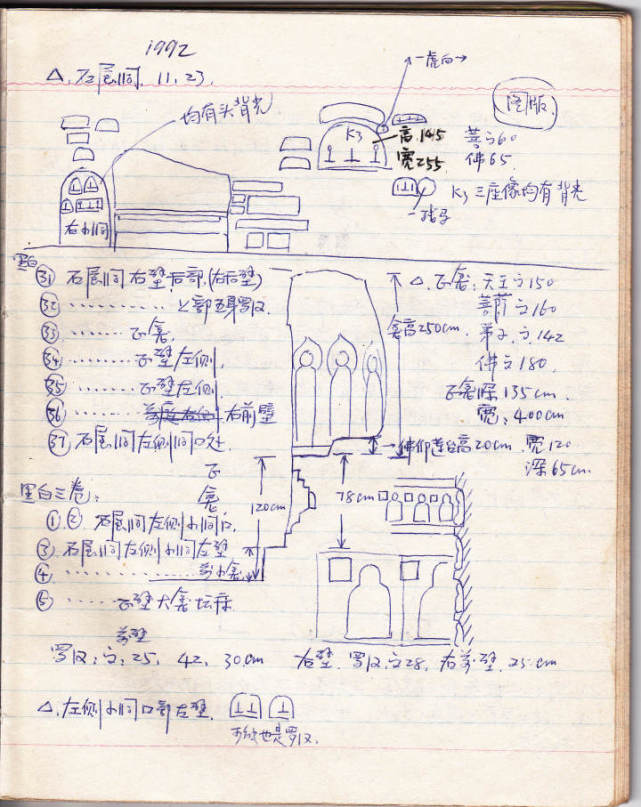 1992
△.石屋洞. 11.23.
均有头背光
一虎向→
图版
K3
高145
宽255
菩立60
佛65
K3三座像均有背光
一珠子
右小洞
黑白
㉛ 石屋洞右壁后部.(右后壁)
㉜ ………… 上部五身罗汉.
㉝ ……… 正龛.
㉞ ……… 正壁左侧.
㉟ ……… 正壁左侧.
㊱ ……… 右前壁
㊲ 石屋洞左侧洞口处
△.正龛:天王立150
菩萨立160
弟子.立142
佛立180.
龛高250cm.
正龛深135cm.
宽:400cm
佛仰莲台高20cm.宽120
深65cm.
正龛
120cm
78cm
黑白三卷:
①.② 石屋洞左侧小洞口.
③ 石屋洞左侧小洞左壁
④ ………… 前小龛.
⑤ ……… 正壁大龛坛床
前壁
罗汉:立:25, 42, 30cm
右壁.罗汉立28, 右前壁.25cm
△.左侧小洞口部左壁.
可能也是罗汉.